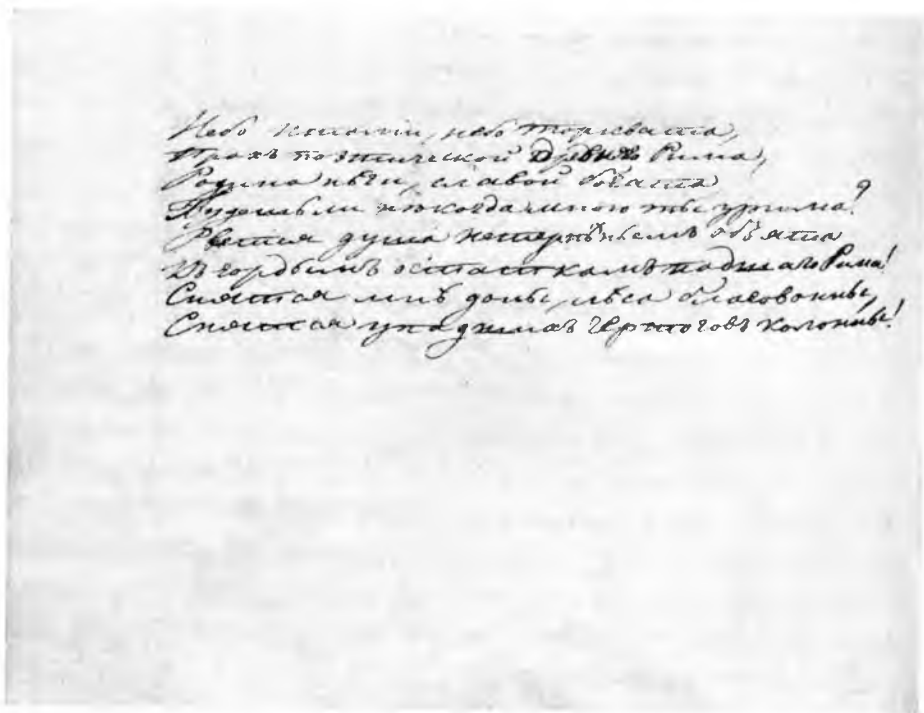 Небо Италіи, небо Торквата,
Прахъ поэтической Древняго Рима,
Родина нѣги, славой богата
Будешь ли нѣкогда мною ты зрима?
Рвется душа нетерпѣньемъ объята
Къ гордымъ остаткамъ падшаго Рима!
Снятся мнѣ долы, лѣса благовонны,
Снятся упадшихъ чертоговъ колонны!